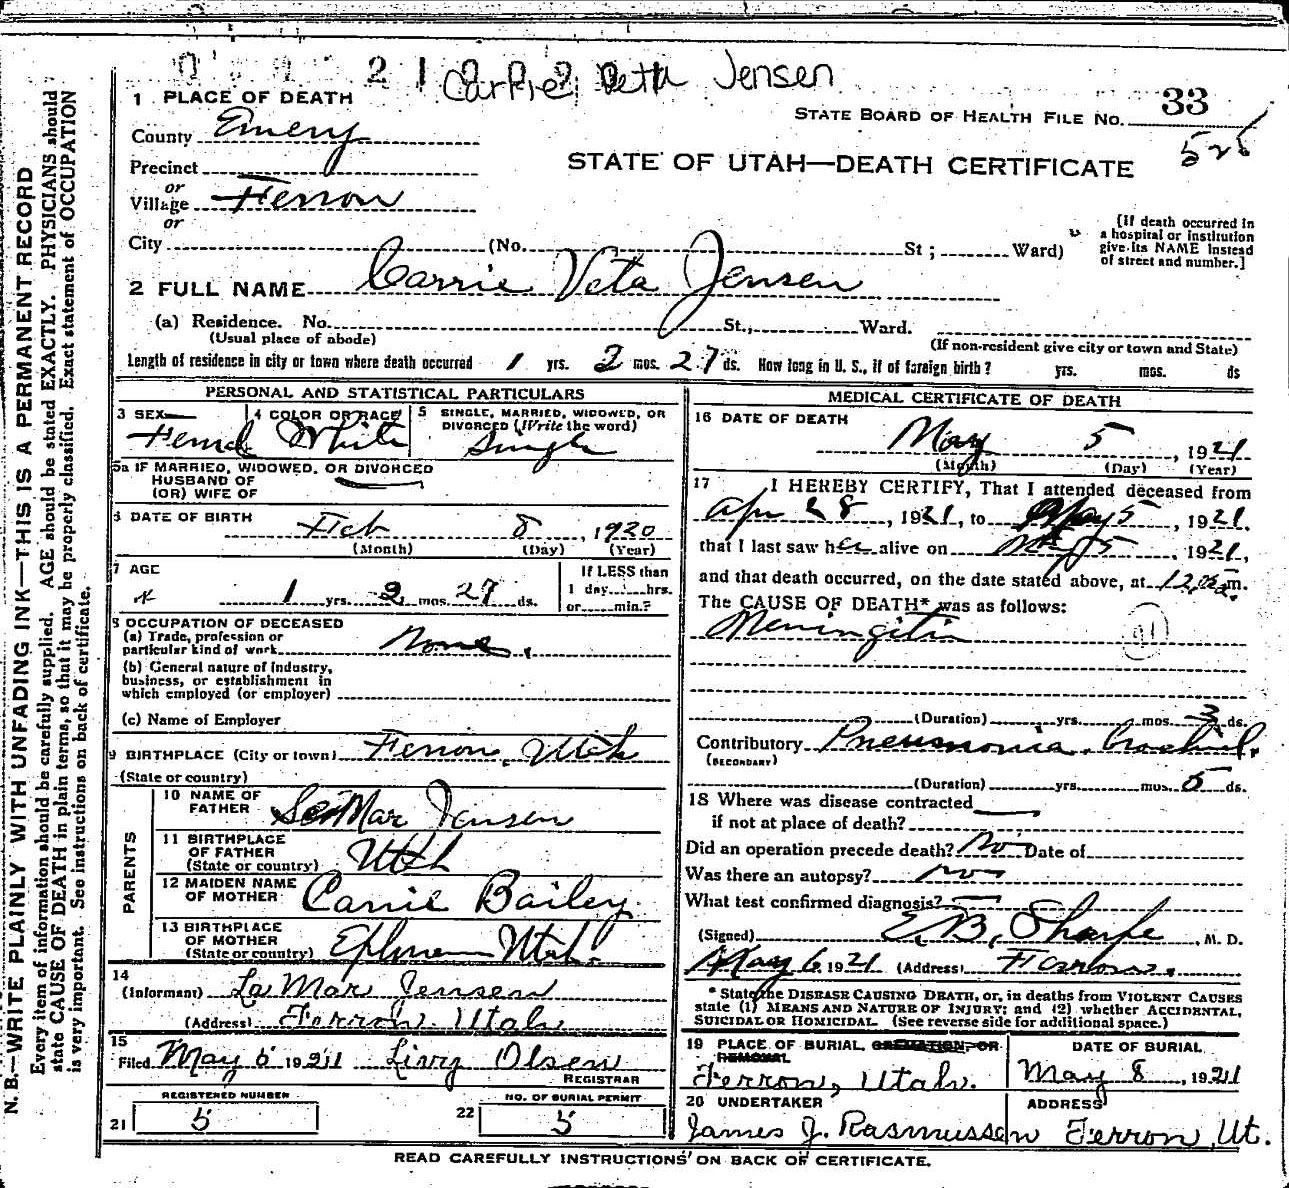 21 Carrie Veta Jensen
1 PLACE OF DEATH
County Emery
STATE BOARD OF HEALTH FILE NO. 33
525
STATE OF UTAH—DEATH CERTIFICATE
Precinct
or
Village Ferron
or
City (No. St; Ward)
[If death occurred in
a hospital or institution
give its NAME instead
of street and number.]
2 FULL NAME Carrie Veta Jensen
(a) Residence. No. St., Ward.
(Usual place of abode)
(If non-resident give city or town and State)
Length of residence in city or town where death occurred 1 yrs. 2 mos. 27 ds. How long in U. S., if of foreign birth? yrs. mos. ds
PERSONAL AND STATISTICAL PARTICULARS
3 SEX 4 COLOR OR RACE 5 SINGLE, MARRIED, WIDOWED, OR
DIVORCED (Write the word)
Femal White Single
5a IF MARRIED, WIDOWED, OR DIVORCED
HUSBAND OF
(OR) WIFE OF
6 DATE OF BIRTH Feb 8, 1920
(Month) (Day) (Year)
7 AGE
1 yrs. 2 mos. 27 ds.
If LESS than
1 day hrs.
or min.?
8 OCCUPATION OF DECEASED
(a) Trade, profession or
particular kind of work None.
(b) General nature of industry,
business, or establishment in
which employed (or employer)
(c) Name of Employer
9 BIRTHPLACE (City or town) Ferron, Utah
(State or country)
PARENTS
10 NAME OF
FATHER LaMar Jensen
11 BIRTHPLACE
OF FATHER
(State or country) Utah
12 MAIDEN NAME
OF MOTHER Carrie Bailey
13 BIRTHPLACE
OF MOTHER
(State or country) Utah.
14
(Informant) La Mar Jensen
(Address) Ferron Utah
15
Filed May 6 1921 Livy Olsen
REGISTRAR
REGISTERED NUMBER
21 5
NO. OF BURIAL PERMIT
22 5
MEDICAL CERTIFICATE OF DEATH
16 DATE OF DEATH
May 5, 1921
(Month) (Day) (Year)
17 I HEREBY CERTIFY, That I attended deceased from
Apr 28, 1921, to May 5, 1921.
that I last saw her alive on May 5, 1921,
and that death occurred, on the date stated above, at m.
The CAUSE OF DEATH* was as follows:
Meningitis
(Duration) yrs. mos. 3 ds.
Contributory Pneumonia.
(SECONDARY)
(Duration) yrs. mos. 5 ds.
18 Where was disease contracted
if not at place of death?
Did an operation precede death? No Date of
Was there an autopsy? no
What test confirmed diagnosis?
(Signed) E. B. Sharpe, M. D.
May 6 1921 (Address) Ferron.
*State the DISEASE CAUSING DEATH, or, in deaths from VIOLENT CAUSES
state (1) MEANS AND NATURE OF INJURY; and (2) whether ACCIDENTAL,
SUICIDAL or HOMICIDAL. (See reverse side for additional space.)
19 PLACE OF BURIAL, CREMATION, OR
REMOVAL
DATE OF BURIAL
Ferron, Utah. May 8, 1921
20 UNDERTAKER ADDRESS
James J. Rasmussen Ferron, Ut.
READ CAREFULLY INSTRUCTIONS ON BACK OF CERTIFICATE.
N. B.—WRITE PLAINLY WITH UNFADING INK—THIS IS A PERMANENT RECORD
Every item of information should be carefully supplied. AGE should be stated EXACTLY. PHYSICIANS should
state CAUSE OF DEATH in plain terms, so that it may be properly classified. Exact statement of OCCUPATION
is very important. See instructions on back of certificate.